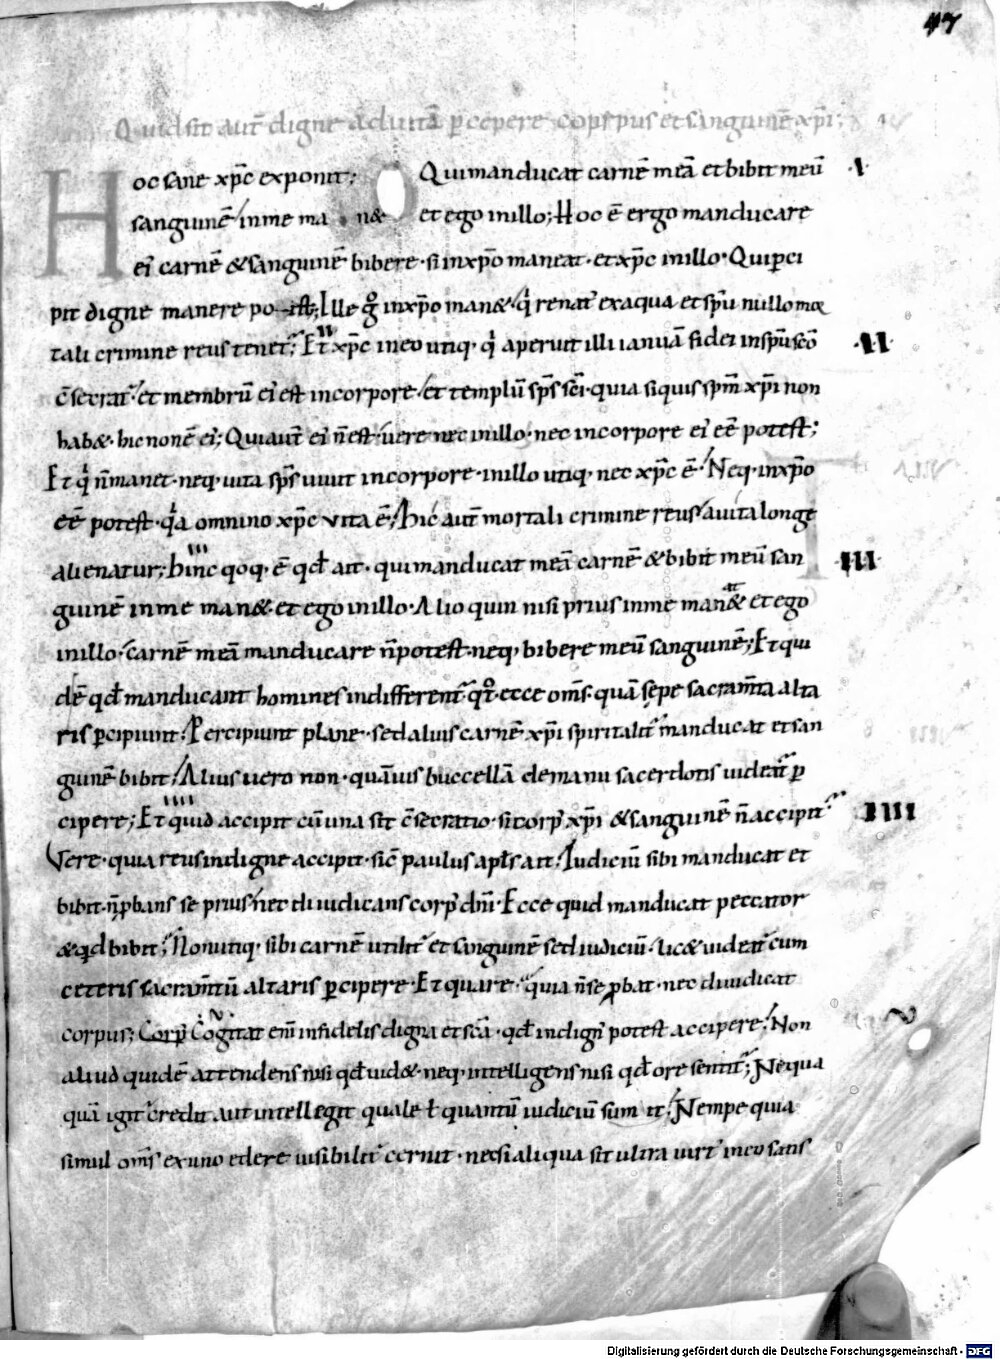 47
Quid sit aut̄ digne ad uitā ꝑcepere corpus et sanguinē xp̄i;
Hoc sane xp̄c exponit; Qui manducat carnē meā et bibit meū ·I·
sanguinē in me man& et ego in illo; Hoc ē ergo manducare
ei' carnē & sanguinē bibere· si in xp̄o maneat· et xp̄c in illo· Qui ꝑci
pit digne manere potest; Ille gͦ in xp̄o man&· qͥ renat' ex aqua et sp̄u nullo mor
tali crimine reus tenet'; Et xp̄c in eo utiq, qͥ aperuit illi ianuā fidei in sp̄u sc̄o ·II·
c̄secrat'· et membrū ei' est in corpore· et templū sp̄s sc̄i· quia siquis sp̄m xp̄i non
hab&· hic non ē ei'; Qui aut̄ ei' n̄ est· uere nec in illo· nec in corpore ei' eē potest;
Et qͥ n̄ manet· neq, uita sp̄s uiuit in corpore· in illo utiq, nec xp̄c ē· Neq, in xp̄o
eē potest· qͣ omnino xp̄c vita ē; hic aut̄ mortali crimine reus a uita longe
alienatur; hinc qoq, ē qd̄ ait· qui manducat meā carnē & bibit meū san ·III·
guinē in me man&· et ego in illo· Alio quin nisi prius in me man& et ego
in illo· carnē meā manducare n̄ potest· neq, bibere meū sanguinē; Et qui
dē qd̄ manducant homines indifferent' qͦt· ecce om̄s quā sepe sacram̄ta alta
ris ꝑcipiunt; Percipiunt plane· sed alius carnē xp̄i spiritalit' manducat et san
guinē bibit; Alius uero non· quāuis buccellā de manu sacerdotis uideat' ꝑ
cipere; Et quid accipit cū una sit c̄secratio· si corp' xp̄i & sanguinē n̄ accipit ·IIII·
Vere· quia reus indigne accipit· sic̄ paulus apl̄s ait· Iudiciū sibi manducat et
bibit· n̄ ꝓbans se prius nec diiudicans corp' dn̄i· Ecce quid manducat peccator
& qd̄ bibit; Non utiq, sibi carnē utilit' et sanguinē sed iudiciū· lic& uideat' cum
ceteris sacram̄tū altaris ꝑcipere· Et quare· quia n̄ se ꝓbat· nec diiudicat
corpus; Cogitat eni infidelis digna et sc̄a· qd̄ indign' potest accipere; Non
aliud quidē attendens nisi qd̄ uid&· neq, intelligens nisi qd̄ ore sentit'; Nequa
quā igit' credit aut intellegit quale ł quantū iudiciū sum it; Nempe quia
simul om̄s ex uno edere uisibilit' cernit· nec si aliqua sit ultra uirt' in eo sans
Digitalisierung gefördert durch die Deutsche Forschungsgemeinschaft · DFG